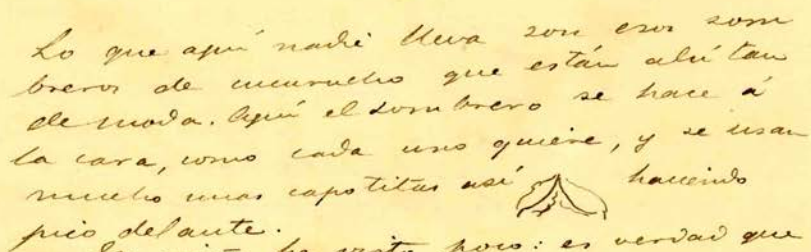 Lo que aquí nadie lleva son esos som
breros de cucurucho que están ahí tan
de moda. Aquí el sombrero se hace á
la cara, como cada uno quiere, y se usan
mucho unas capotitas así haciendo
pico delante.
he visto poco: es verdad que